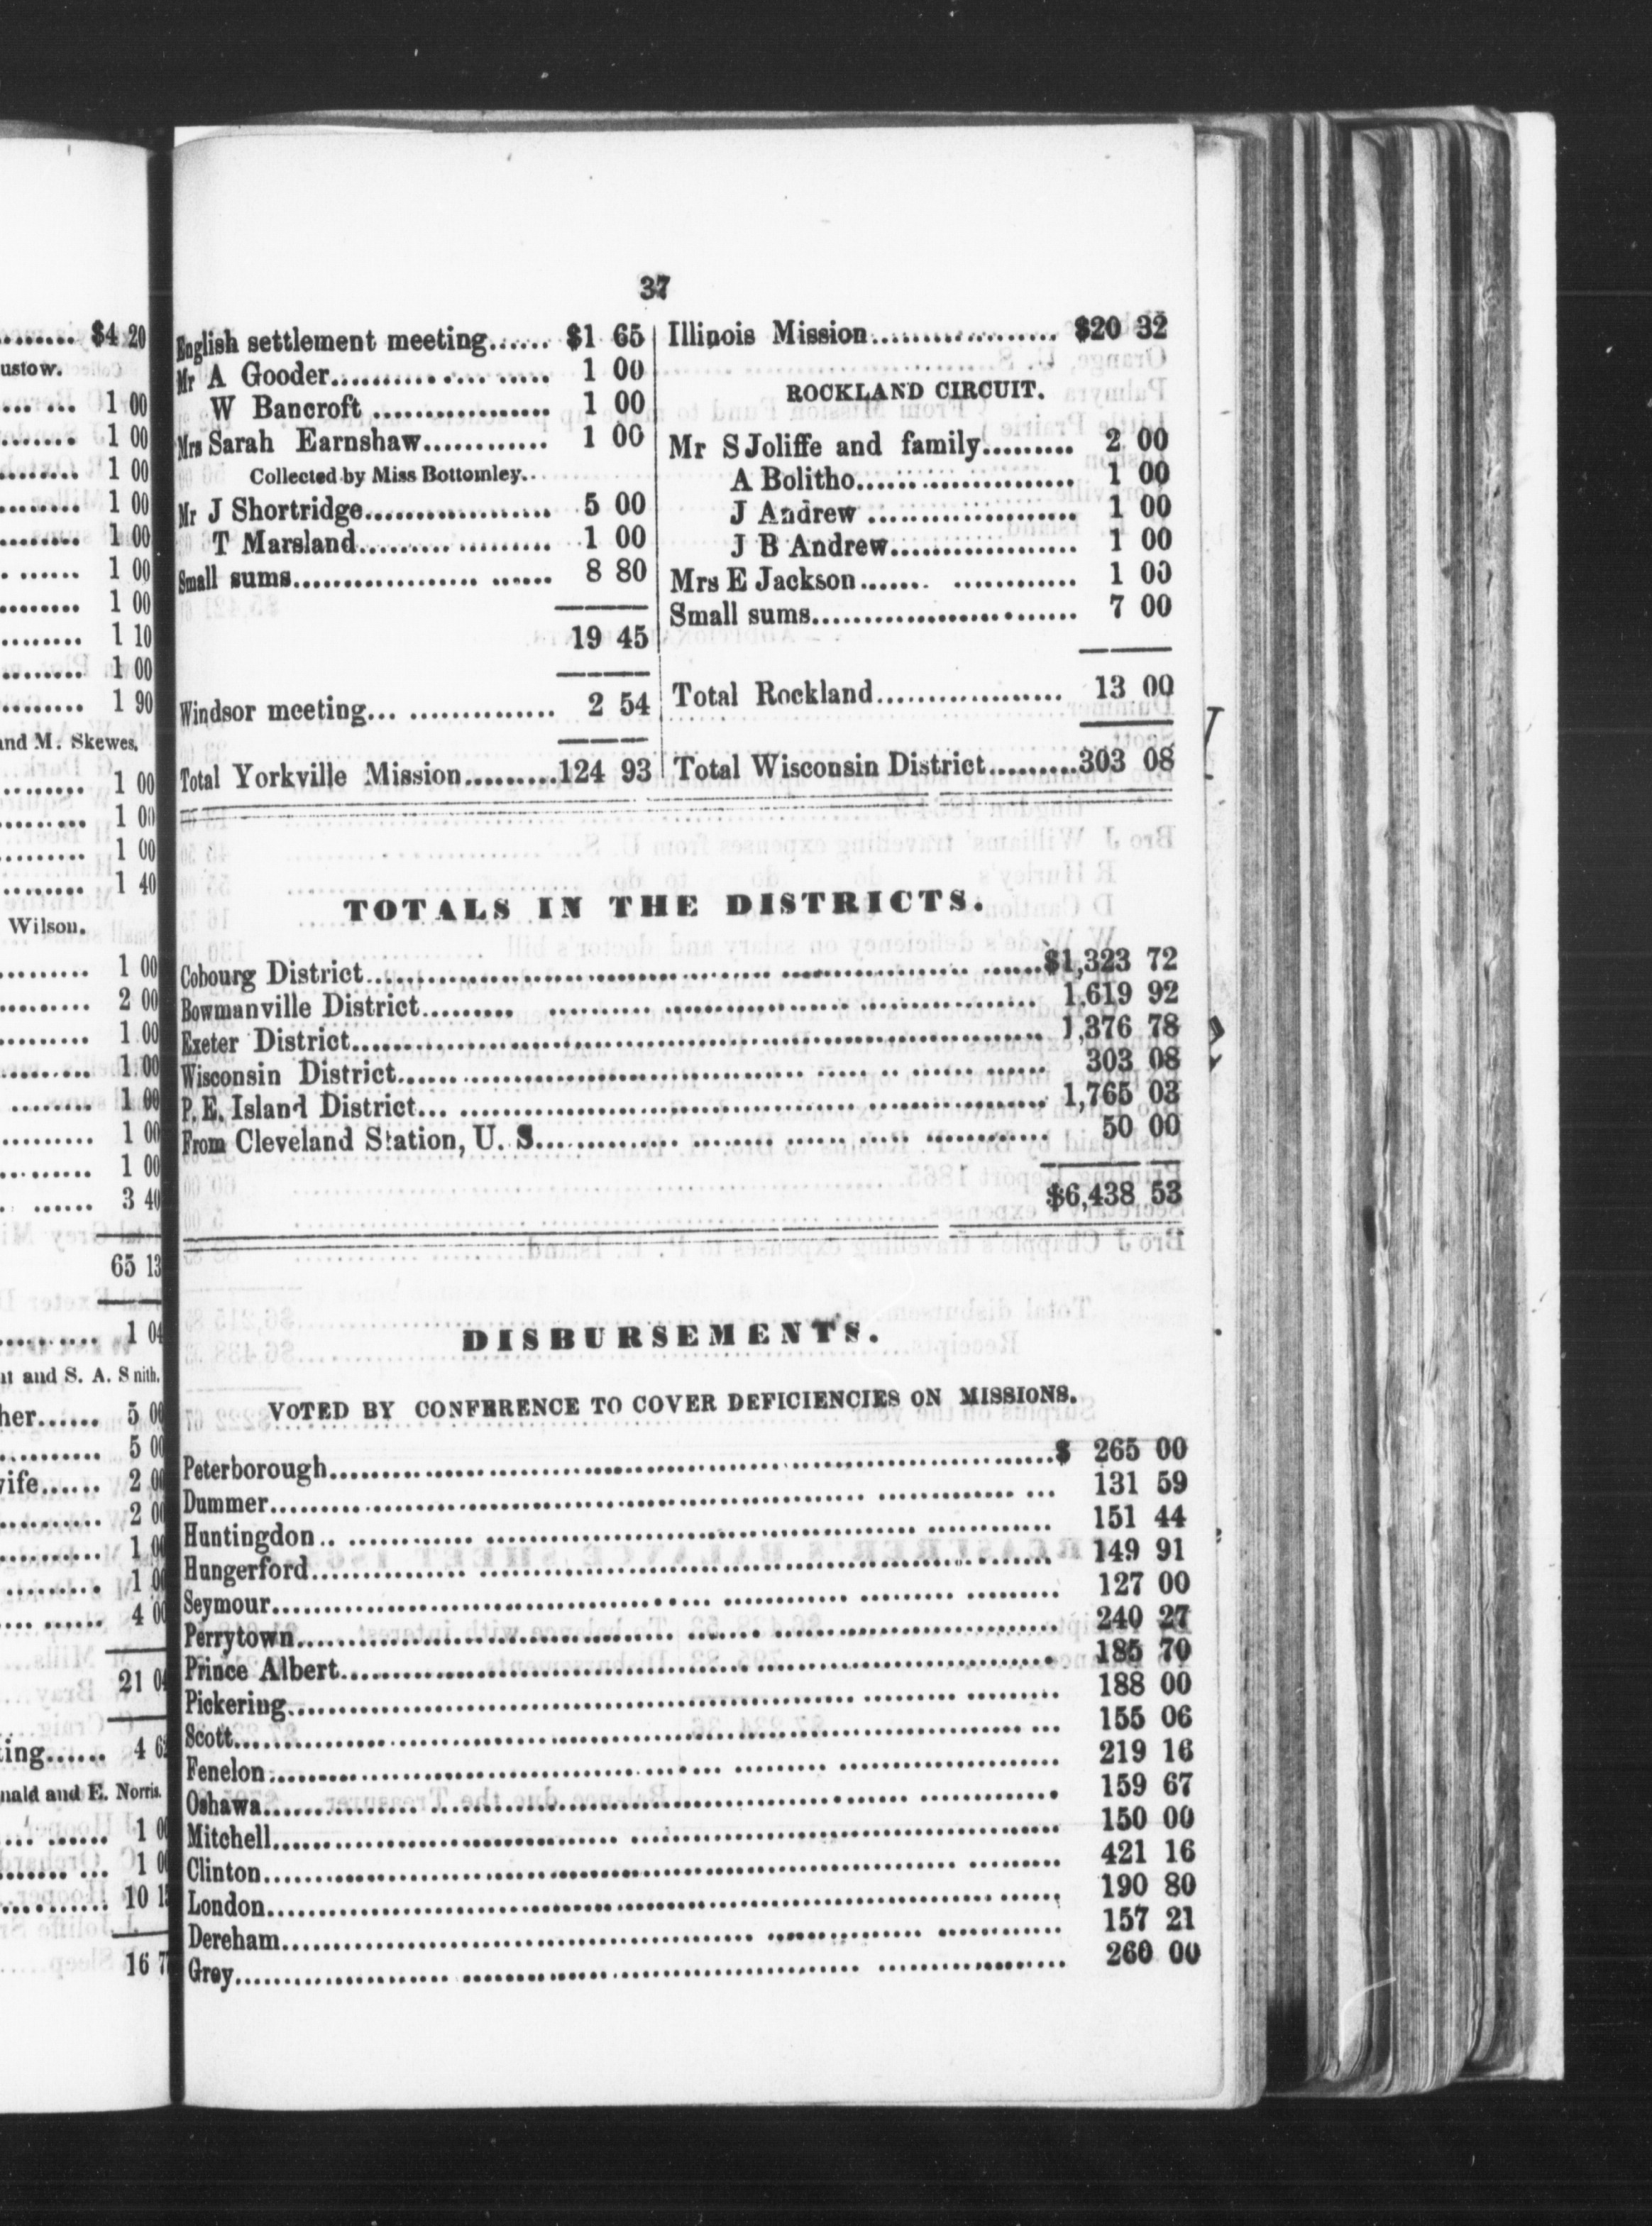 $4 20
ustow.
1 00
1 00
1 00
1 00
1 00
1 00
1 00
1 10
1 00
1 90
and M. Skewes.
1 00
1 00
1 00
1 40
Wilson.
1 00
2 00
1 00
1 00
1 00
1 00
1 00
3 40
65 13
1 04
and S. A. Smith.
her...... 5 00
5 00
wife...... 2 00
2 00
1 00
1 00
4 00
21 04
ing...... 4
nald and E. Norris.
1 00
1 00
10
16
37
English settlement meeting...... $1 65
Mr A Gooder...... 1 00
W Bancroft...... 1 00
Mrs Sarah Earnshaw...... 1 00
Collected by Miss Bottomley.
Mr J Shortridge...... 5 00
T Marsland...... 1 00
Small sums...... 8 80
19 45
Windsor meeting...... 2 54
Total Yorkville Mission......124 93
Illinois Mission...... $20 32
ROCKLAND CIRCUIT.
Mr S Joliffe and family...... 2 00
A Bolitho...... 1 00
J Andrew...... 1 00
J B Andrew...... 1 00
Mrs E Jackson...... 1 00
Small sums...... 7 00
Total Rockland...... 13 00
Total Wisconsin District......303 08
TOTALS IN THE DISTRICTS.
Cobourg District......$1,323 72
Bowmanville District...... 1,619 92
Exeter District...... 1,376 78
Wisconsin District...... 303 08
P. E. Island District...... 1,765 03
From Cleveland Station, U. S...... 50 00
$6,438 53
DISBURSEMENTS.
VOTED BY CONFERENCE TO COVER DEFICIENCIES ON MISSIONS.
Peterborough......$ 265 00
Dummer...... 131 59
Huntingdon...... 151 44
Hungerford...... 149 91
Seymour...... 127 00
Perrytown...... 240 27
Prince Albert...... 185 70
Pickering...... 188 00
Scott...... 155 06
Fenelon...... 219 16
Oshawa...... 159 67
Mitchell...... 150 00
Clinton...... 421 16
London...... 190 80
Dereham...... 157 21
Grey...... 260 00